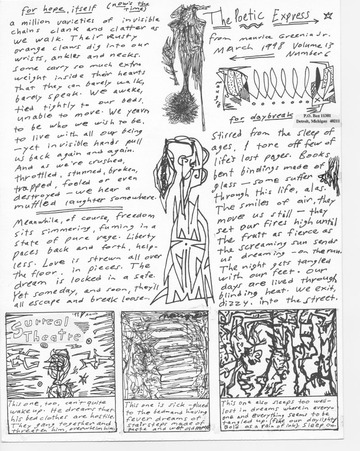 for hope, itself (now's the time)
a million varieties of invisible
chains clank and clatter as
we walk. Their rusty,
orange claws dig into our
wrists, ankles and necks.
Some carry so much extra
weight inside their hearts
that they can barely walk,
barely speak. We awake,
tied tightly to our beds,
unable to move. We yearn
to be who we wish to be,
to live with all our being
yet invisible hands pull
us back again and again.
And if we're crushed,
throttled, stunned, broken,
trapped, fooled or even
destroyed - we hear a
muffled laughter somewhere.
Meanwhile, of course, freedom
sits simmering, fuming in a
state of pure rage. Liberty
paces back and forth, help-
less. Love is strewn all over
the floor, in pieces. The
dream is locked in a safe.
Yet someday, and soon, they'll
all escape and break loose.
The Poetic Express
from maurice Greenia Jr.
MARCH 1998 Volume 13
Number 6
P.O. Box
Detroit, Michigan
for daybreak
Stirred from the sleep of
ages, I tore off few of
life's lost pages. Books
bent bindings made of
glass - some suffer
through this life, alas.
The smiles of air, they
move us still - they
set our fires high until
the fruit as fierce as
the screaming sun sends
us dreaming - on the run.
The night gets tangled
with our feet. Our
days are lived through
blinding heat. We exit,
dizzy, into the street.
Surreal
Theatre
This one, too, can't quite
wake up. He dreams that
his bed clothes are hostile.
They gang together and
threaten him, overwhelm him.
This one is sick - glued
to the bed and having
fever dreams of
stair steps made of
This one also sleeps too well -
lost in dreams where every-
one and everything seems to be
tangled up.